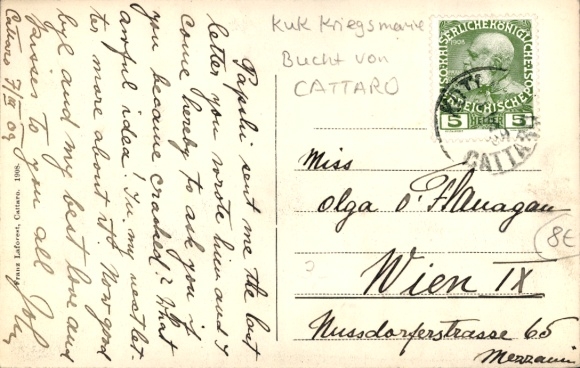 Papshi sent me the last
letter you wrote him and I
come hereby to ask you if
you became cracked? What
awful idea! In my next let-
ter more about it. Now good
bye and my best love and
kisses to you all
Cattaro 7/III 09
Franz Laforest, Cattaro. 1908.
KuK Kriegsmarine
Bucht von
CATTARO
KAISERLICHE KÖNIGLICHE
1908
ÖSTERREICHISCHE
5 HELLER 5
CATTARO
Miss
Olga O'Flanagan
Wien IX
Nussdorferstrasse 65
Mezzanin
8€